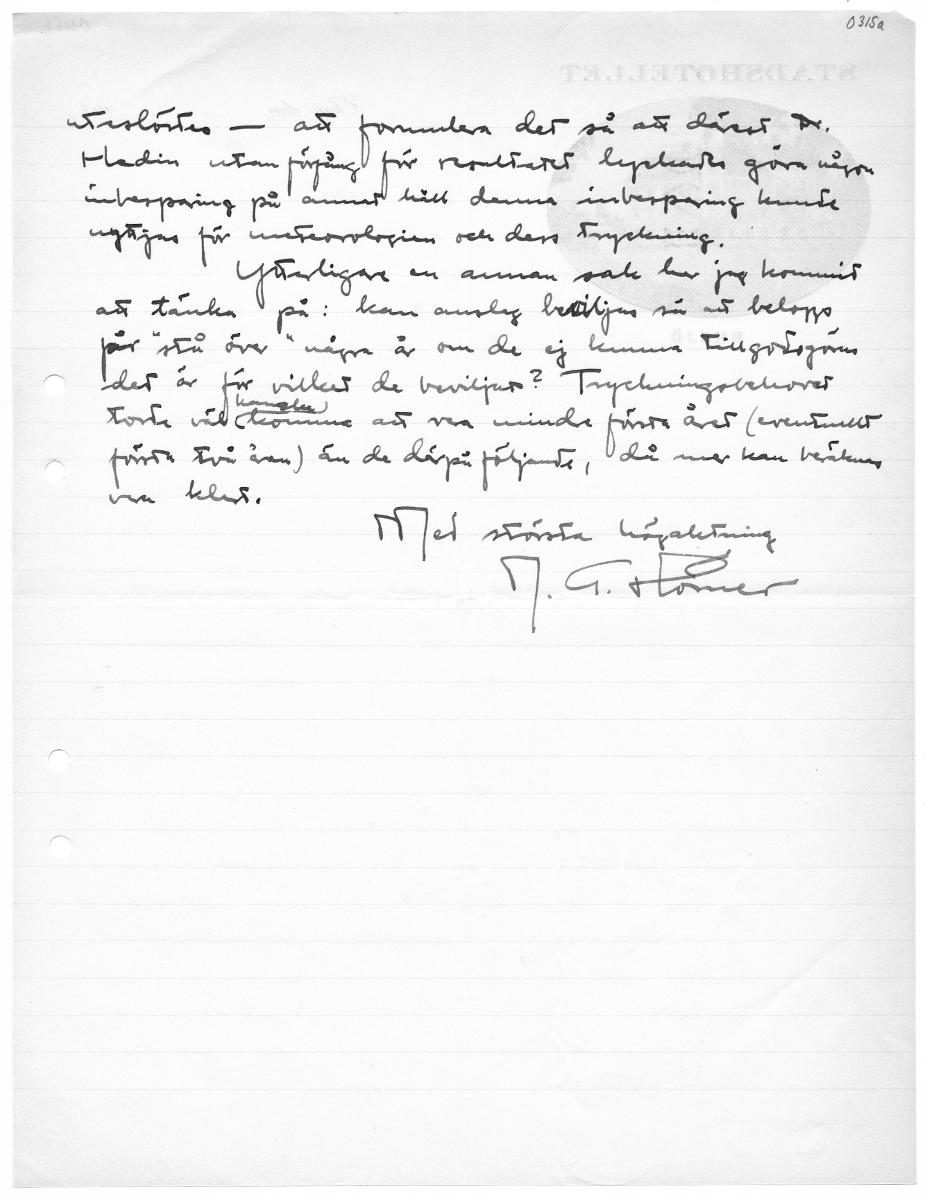 0315a
STADSHOTELLET
uteslötes — att formulera det så att därest Dr.
Hedin utan förfång för resultatet lyckades göra någon
inbesparing på annat håll denna inbesparing kunde
nyttjas för meteorologien och dess tryckning.
Ytterligare en annan sak har jag kommit
att tänka på: kan anslag beviljas så att belopp
får "stå över" några år om de ej kunna tillgodogöras
det år för vilket de beviljas? Tryckningsbehovet
kanske
torde väl komma att vara mindre första året (eventuellt
första två åren) än de därpå följande, då mer kan beräknas
vara klart.
Med största högaktning
N. G. Hörner